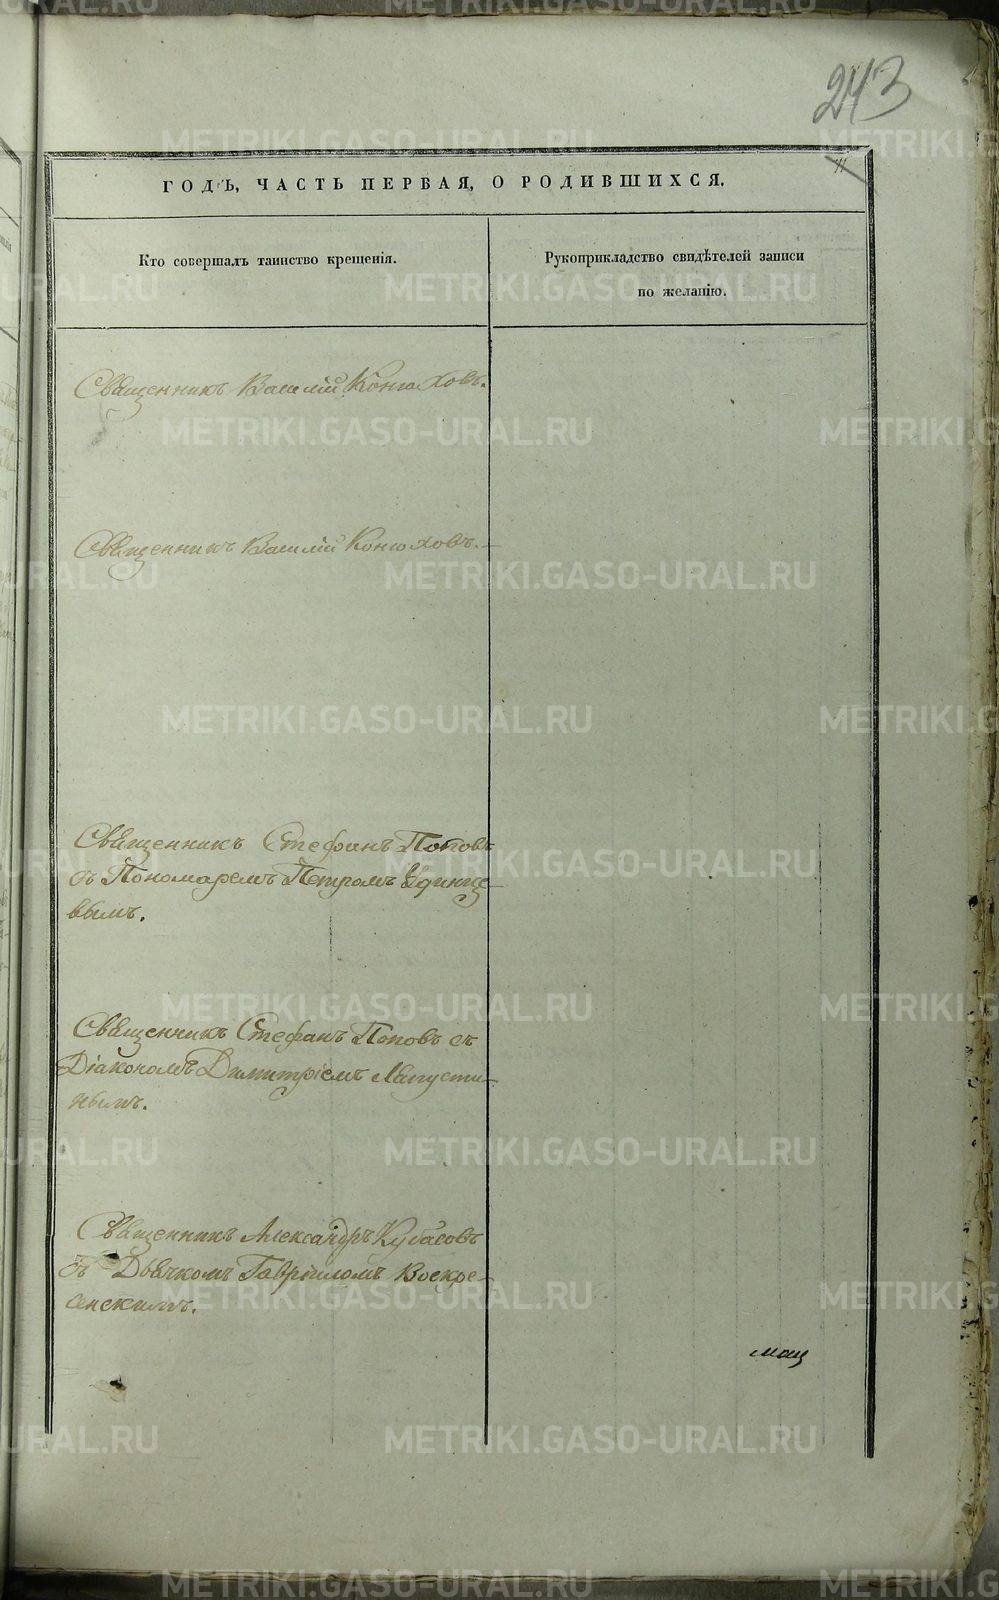 243
11
ГОДЪ, ЧАСТЬ ПЕРВАЯ, О РОДИВШИХСЯ.
Кто совершалъ таинство крещенія.
Рукоприкладство свидѣтелей записи
по желанію.
Священникъ Василій Конюховъ.
Священникъ Василій Конюховъ.
Священникъ Стефанъ Поповъ
съ Пономаремъ Петромъ Удинце-
вымъ.
Священникъ Стефанъ Поповъ съ
Діакономъ Димитріемъ Лапусти-
нымъ.
Священникъ Александръ Кубасовъ
съ Дьячкомъ Гаврииломъ Воскре-
сенскимъ.
METRIKI.GASO-URAL.RU